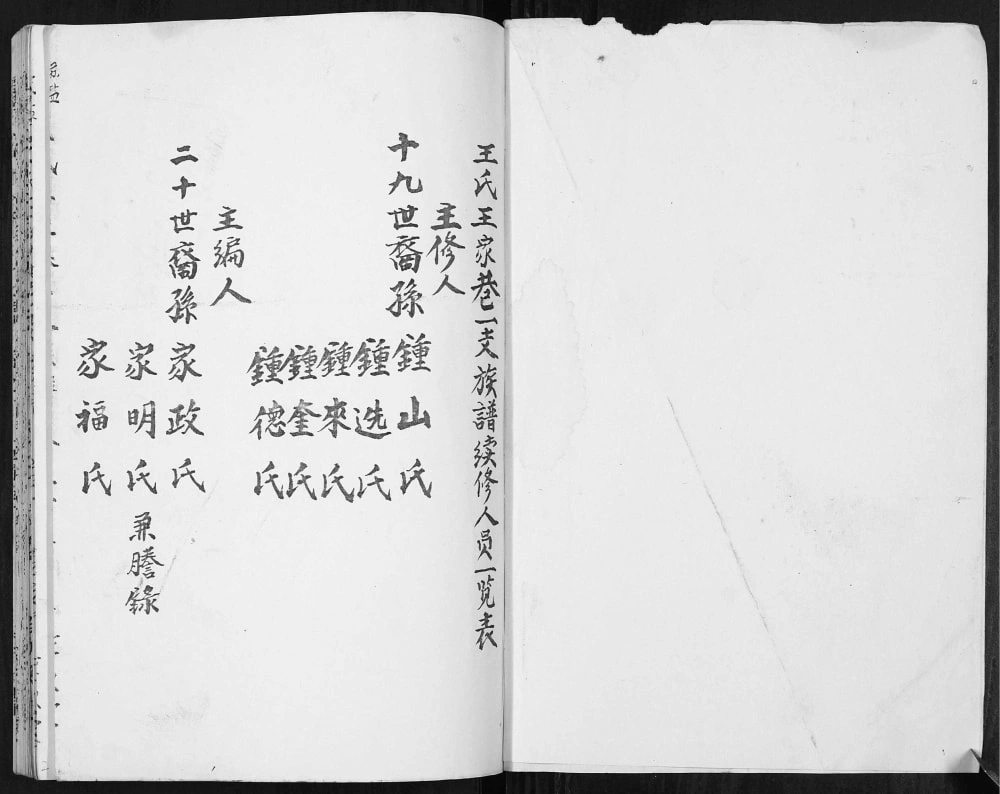 王氏王家巷一支族譜续修人员一覧表
主修人
十九世裔孫
鍾山氏
鍾选氏
鍾來氏
鍾奎氏
鍾德氏
主编人
二十世裔孫
家政氏
家明氏兼謄錄
家福氏